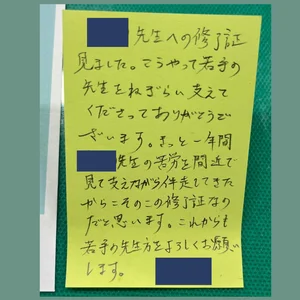 先生への修了証
見ました。こうやって若手の
先生をねぎらい支えて
くださってありがとうご
ざいます。きっと一年間
先生の苦労を間近で
見て支えながら伴走してきた
からこそのこの修了証なの
だと思います。これからも
若手の先生方をよろしくお願い
します。